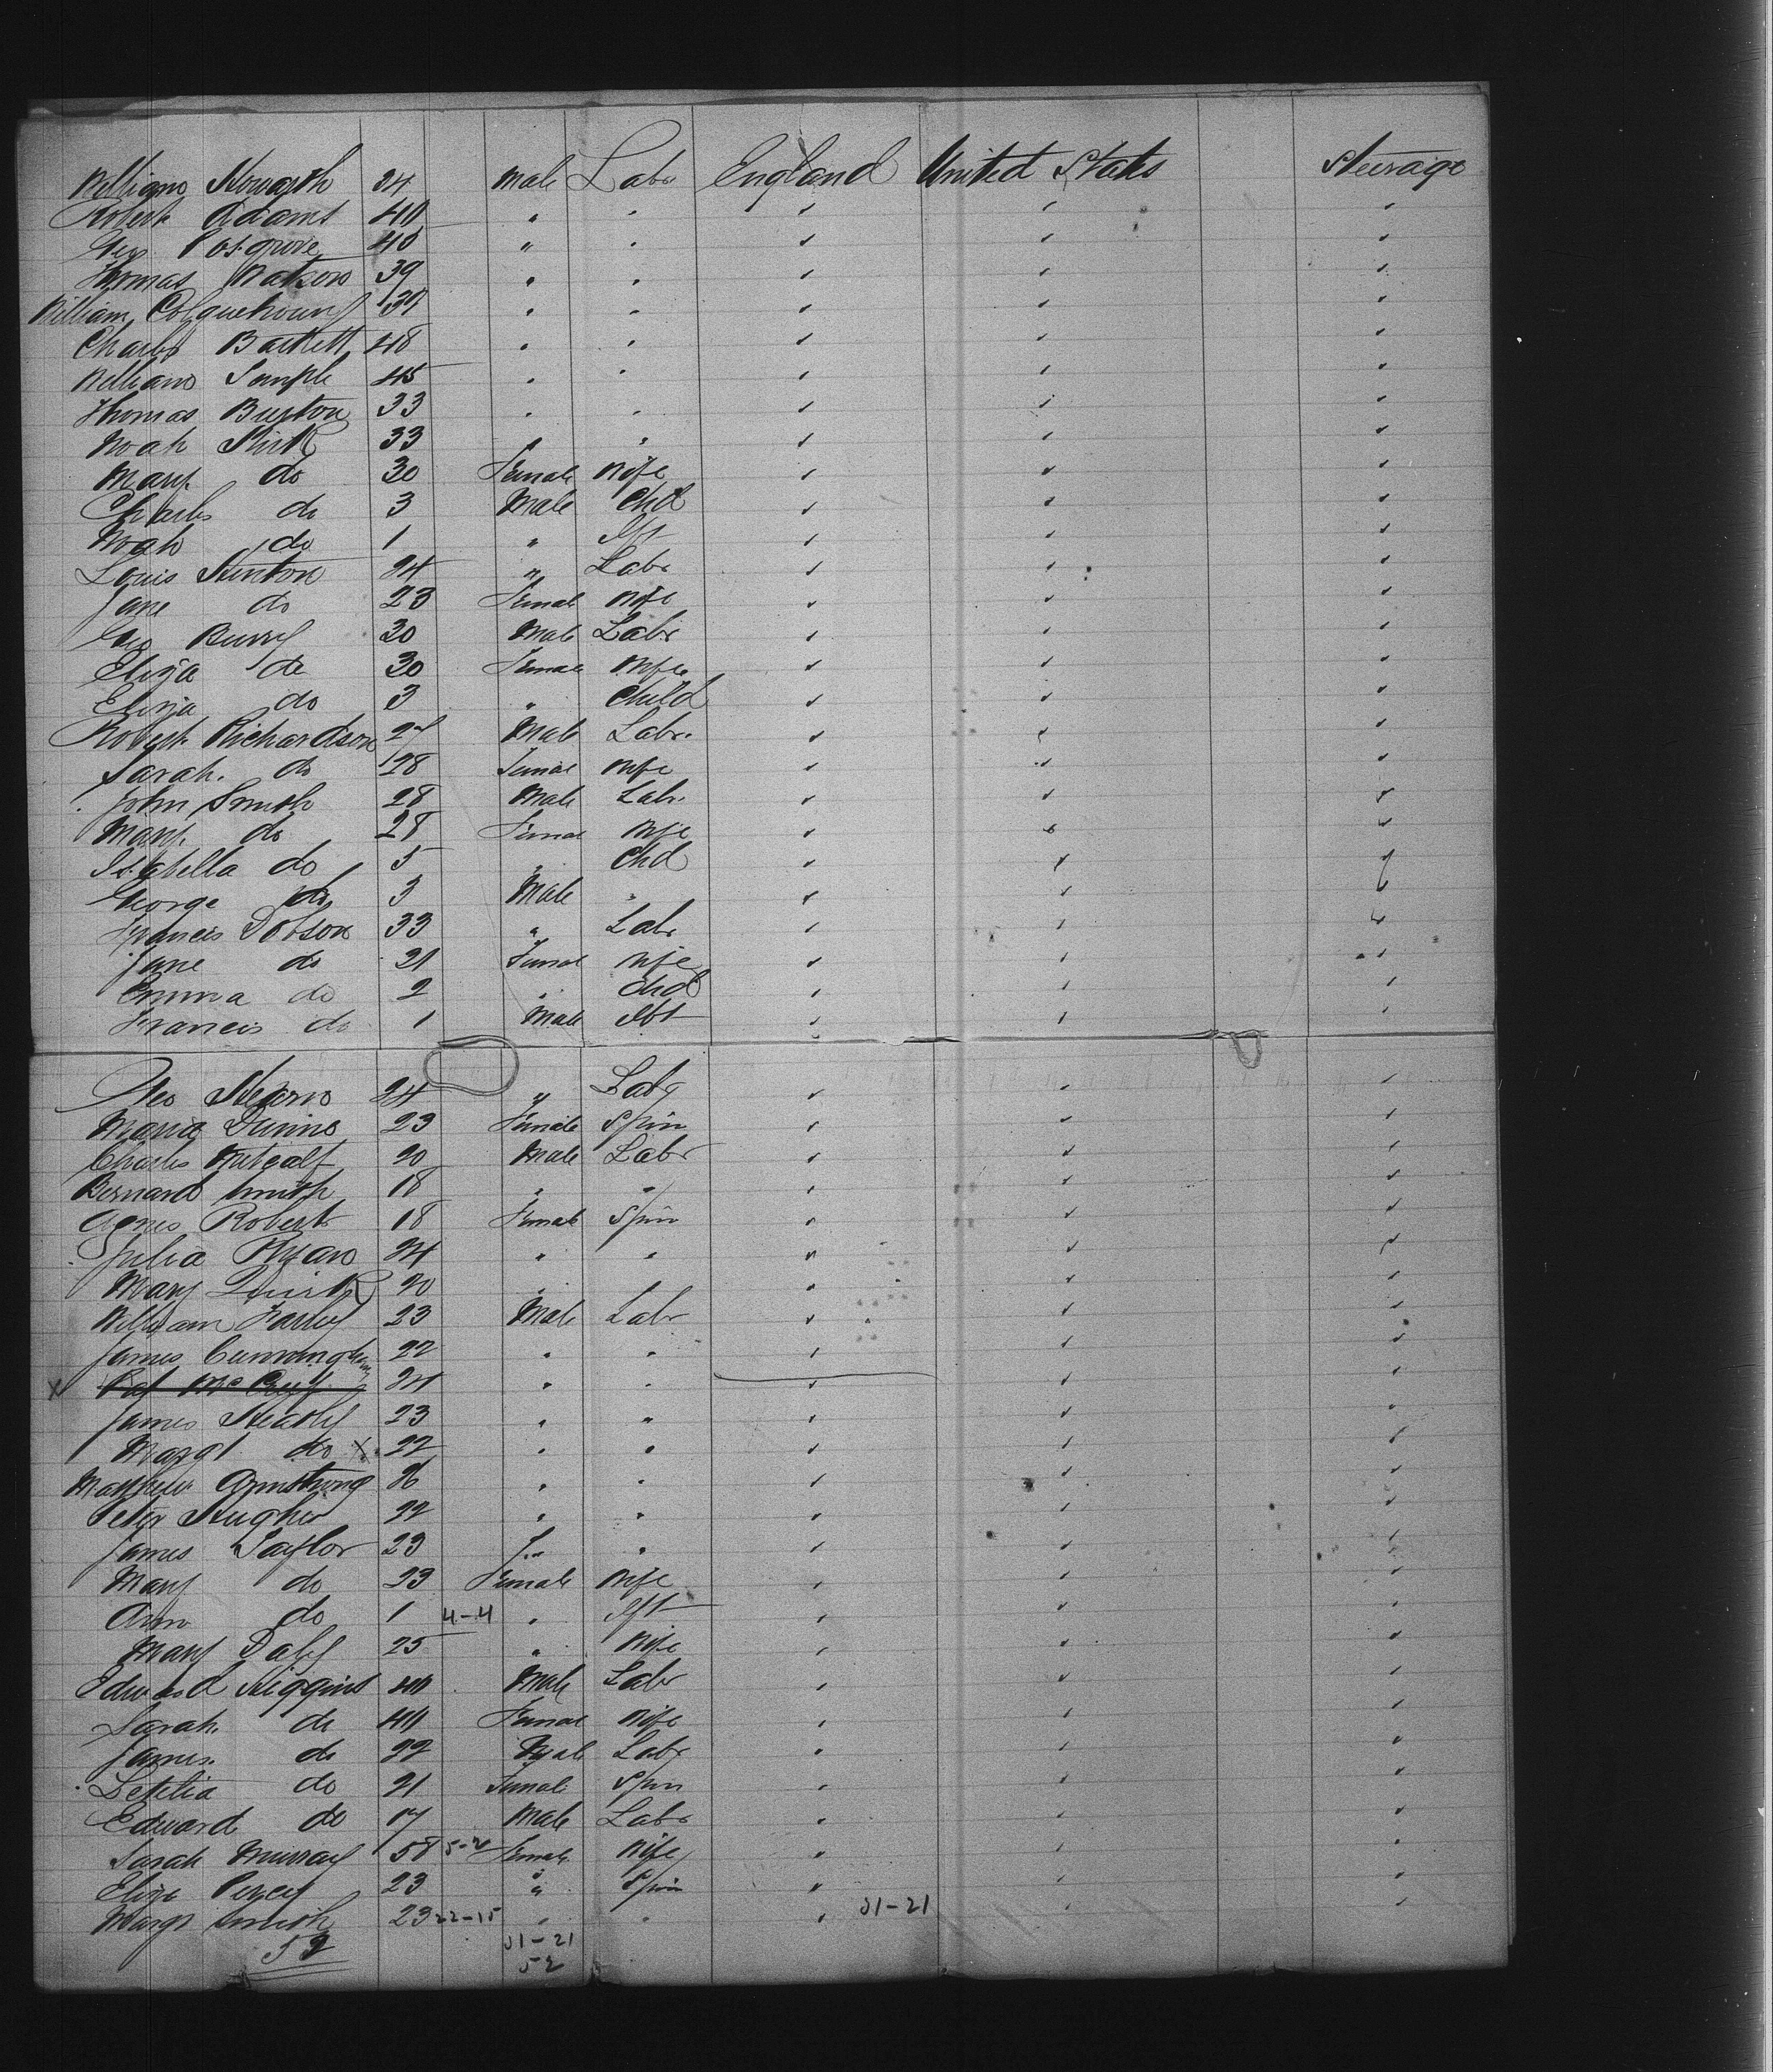 William Howarth 24 Male Labr England United States Steerage
Robert Adams 40 " " " " "
Geo Cosgrove 40 " " " " "
Thomas Watson 39 " " " " "
William Colquehoun 30 " " " " "
Charles Bartlett 48 " " " " "
William Semple 45 " " " " "
Thomas Burton 33 " " " " "
Noah Kirk 33 " " " " "
Mary do 30 Female Wife " " "
Charles do 3 Male Chd " " "
Noah do 1 " Ift " " "
Louis Hinton 24 " Labr " " "
Jane do 23 Female Wife " " "
Geo 30 Male Labr " " "
Eliza do 30 Female Wife " " "
Eliza do 3 " Child " " "
Robert Richardson 27 Male Labr " " "
Sarah do 28 Female Wife " " "
John Smith 28 Male Labr " " "
Mary do 28 Female Wife " " "
Isabella do 5 " Chd " " "
George do 3 Male " " " "
Francis Dobson 33 " Labr " " "
Jane do 21 Female Wife " " "
Emma do 2 " Chd " " "
Francis do 1 Male Ift " " "
Geo 24 " Labr " " "
Maria 23 Female Spin " " "
Charles Metcalf 20 Male Labr " " "
Bernard Smith 18 " " " " "
Agnes Roberts 18 Female Spin " " "
Julia Ryan 24 " " " " "
Mary Quirk 20 " " " "
William Farley 23 Male Labr " " "
James Cunningham 22 " " " " "
x Pat 24 " " " " "
James Healy 23 " " " " "
Margt do x 22 " " " " "
Mathew Armstrong 26 " " " " "
Peter Hughes 22 " " " " "
James Taylor 23 " " " " "
Mary do 23 Female Wife " " "
Ann do 1 4-4 " Ift " " "
Mary Daly 25 " Wife " " "
Edward Higgins 40 Male Labr " " "
Sarah do 40 Female Wife " " "
James do 22 Male Labr " " "
Letitia do 21 Female Spin " " "
Edward do 17 Male Labr " " "
Sarah Murray 58 5-2 Female Wife " " "
Eliza Percy 23 " Spin " " "
Margt Smith 23 22-15 " " " 31-21 " "
52 31-21
52